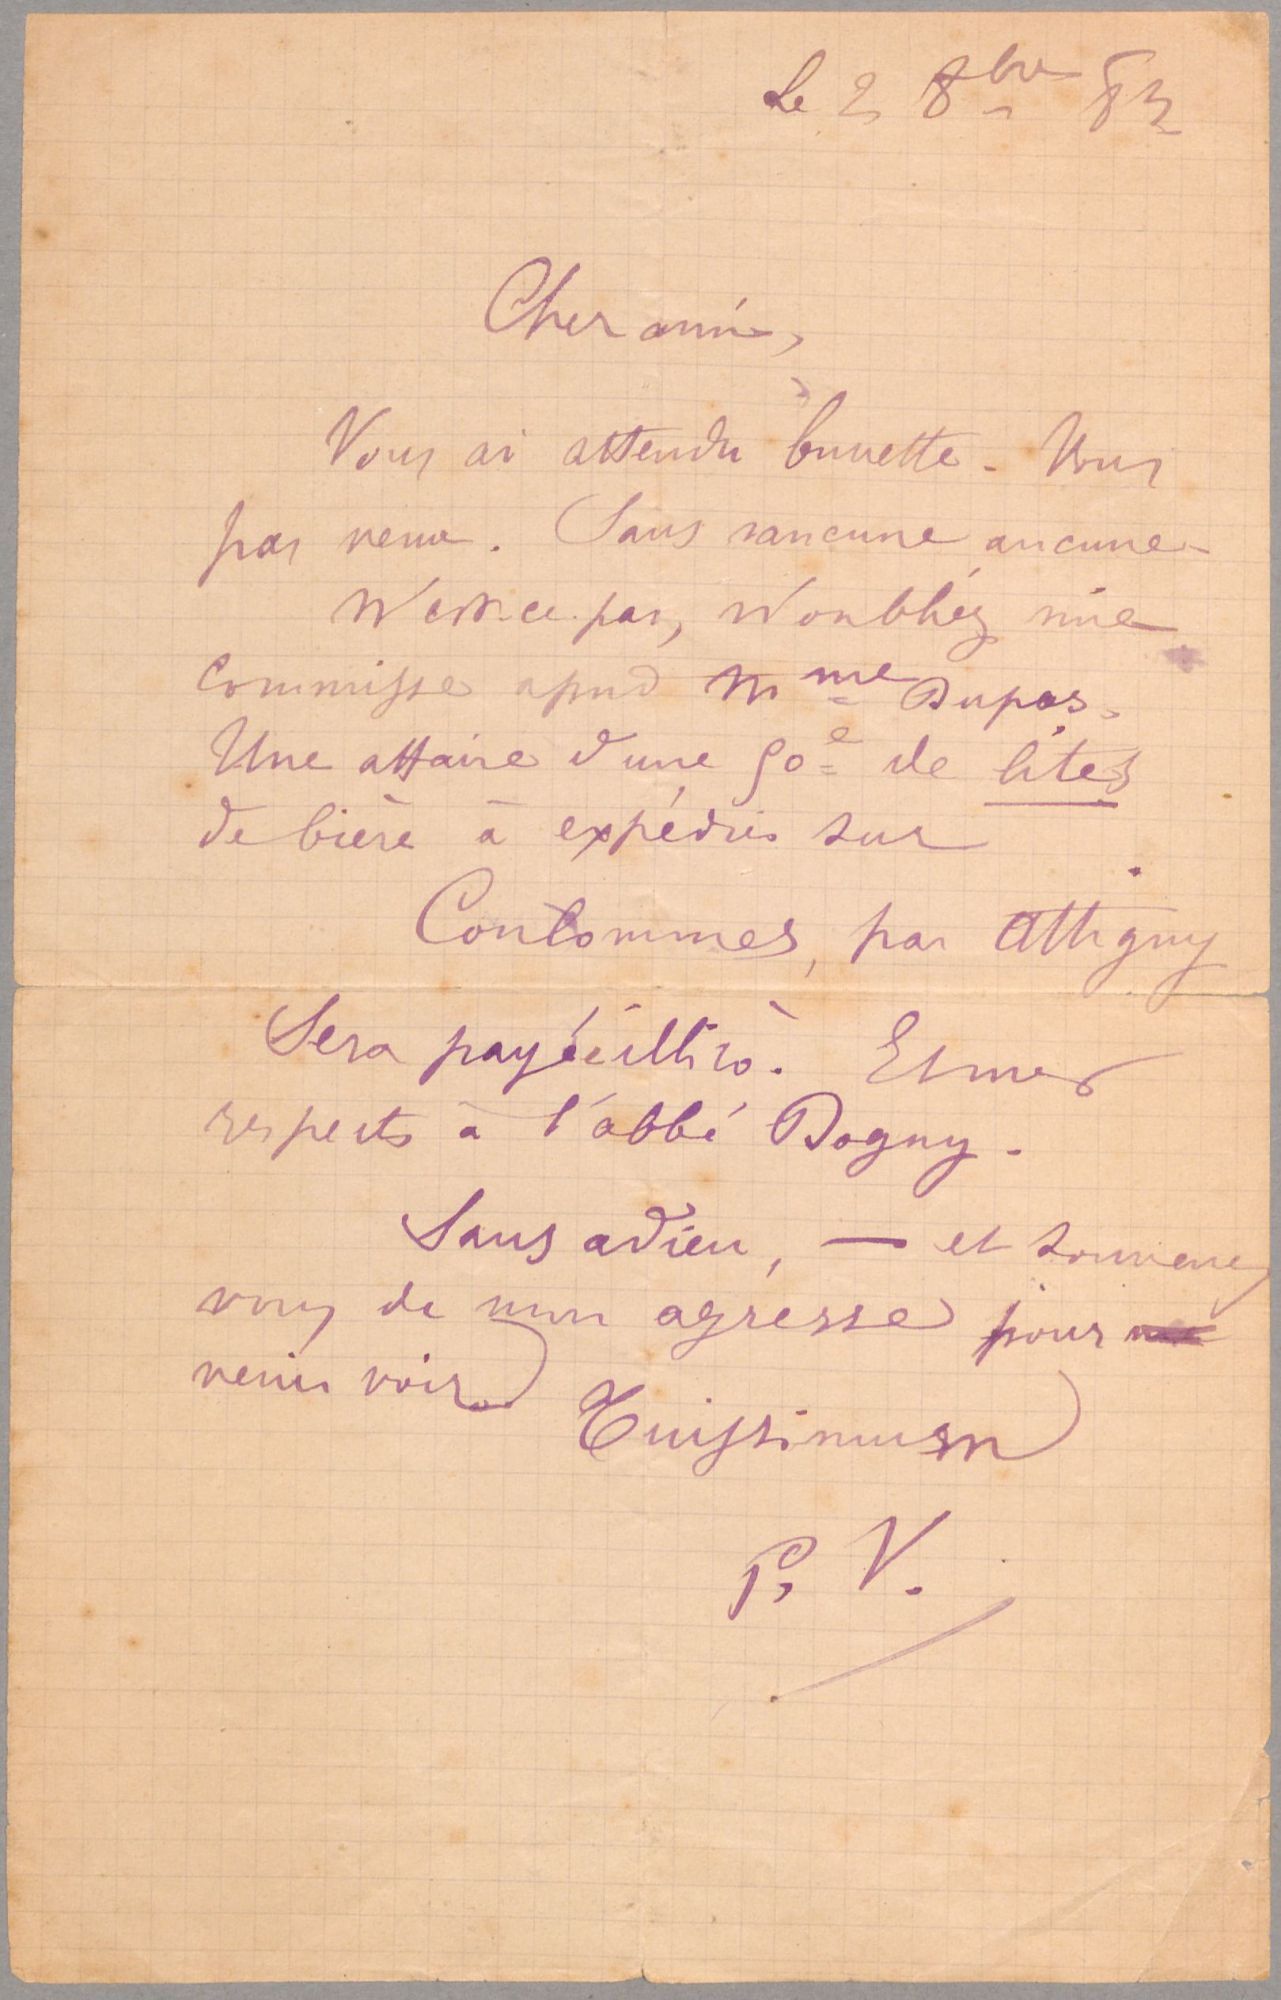 Le 2 8bre 83
Cher ami,
Vous ai attendu buvette. Vous
pas venu. Sans rancune aucune
N'est-ce-pas, N'oubliez mie
commisse apud Mme Dupas.
Une affaire d'une 50e de lites
de bière à expédier sur
Coulommes, par Attigny
Sera payé illicò. Et mes
respects à l'abbé Dogny.
Sans adieu, — et souvenez
vous de mon agresse pour
venir voir.
Tuissimus
P. V.